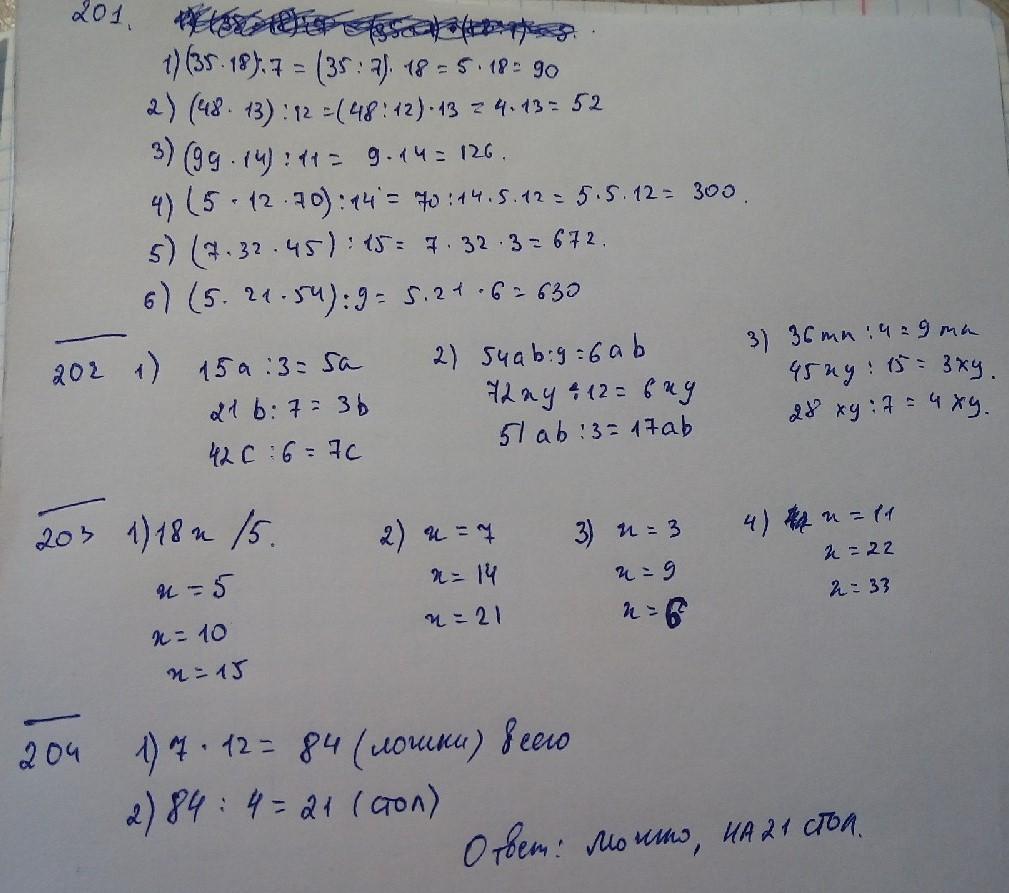 201.
1) (35 · 18) : 7 = (35 : 7) · 18 = 5 · 18 = 90
2) (48 · 13) : 12 = (48 : 12) · 13 = 4 · 13 = 52
3) (99 · 14) : 11 = 9 · 14 = 126.
4) (5 · 12 · 70) : 14 = 70 : 14 · 5 · 12 = 5 · 5 · 12 = 300.
5) (7 · 32 · 45) : 15 = 7 · 32 · 3 = 672.
6) (5 · 21 · 54) : 9 = 5 · 21 · 6 = 630
202 1) 15a : 3 = 5a
21b : 7 = 3b
42c : 6 = 7c
2) 54ab : 9 = 6ab
72xy : 12 = 6xy
51ab : 3 = 17ab
3) 36mn : 4 = 9mn
45xy : 15 = 3xy.
28xy : 7 = 4xy.
203 1) 18x /5.
x = 5
x = 10
x = 15
2) x = 7
x = 14
x = 21
3) x = 3
x = 9
x = 6
4) x = 11
x = 22
x = 33
204 1) 7 · 12 = 84 (ложки) всего
2) 84 : 4 = 21 (стол)
Ответ: можно, на 21 стол.